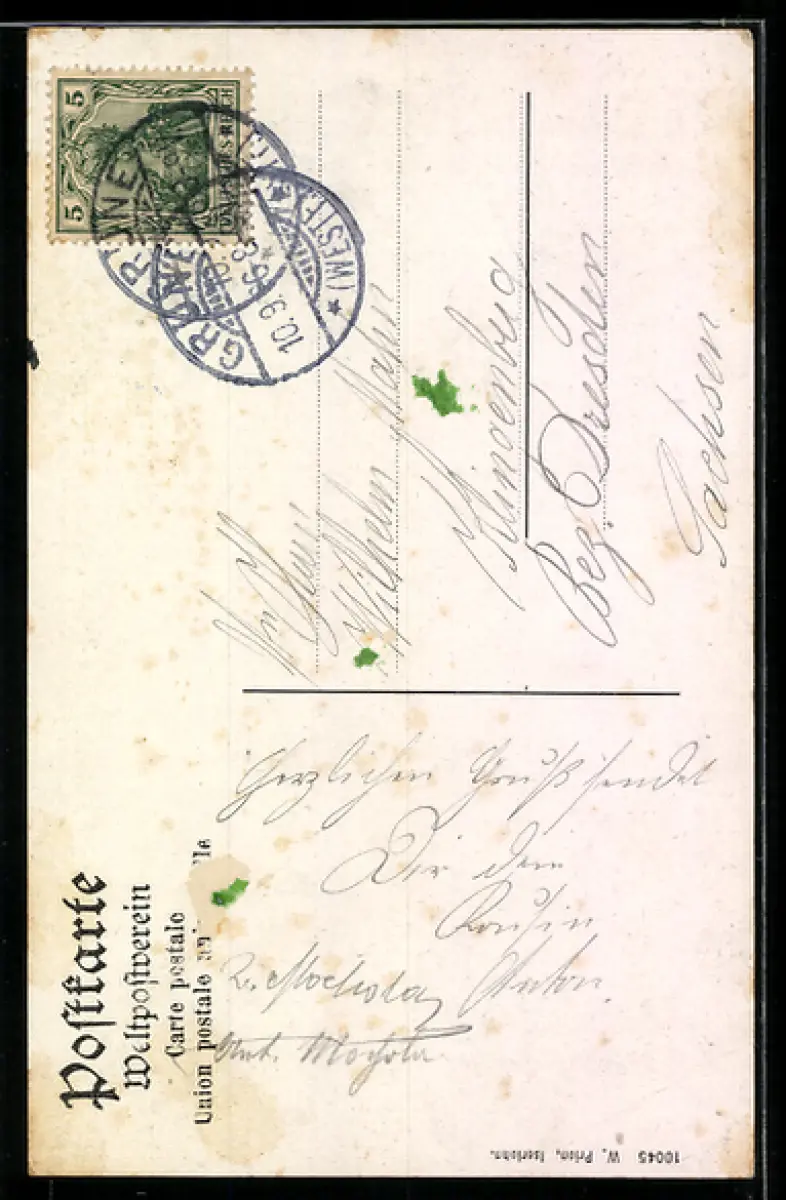 Postkarte
Weltpostverein
Carte postale
Union postale
5 5
DEUTSCHES REICH
GRÜNE
(WESTF.)
10.9.
Wilhelm
Klingenberg
Bez. Dresden
Sachsen
Herzlichen Gruß sendet
Dir dein
Kousin
Anton.
Ant.
10045 W. Prion, Iserlohn.